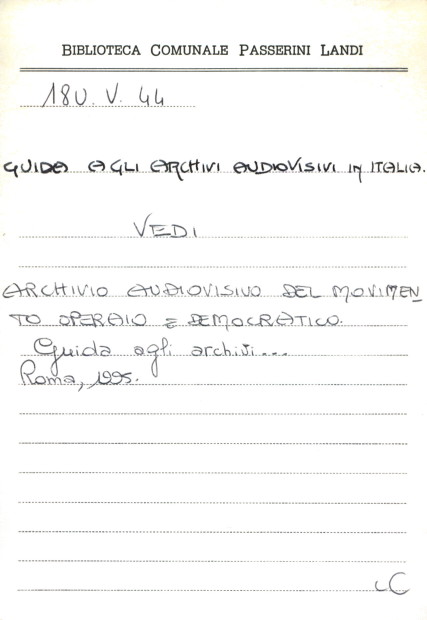 BIBLIOTECA COMUNALE PASSERINI LANDI
18U. V. 44
GUIDA AGLI ARCHIVI AUDIOVISIVI IN ITALIA.
VEDI
ARCHIVIO AUDIOVISIVO DEL MOVIMEN
TO OPERAIO E DEMOCRATICO.
Guida agli archivi...
Roma, 1995.
LC